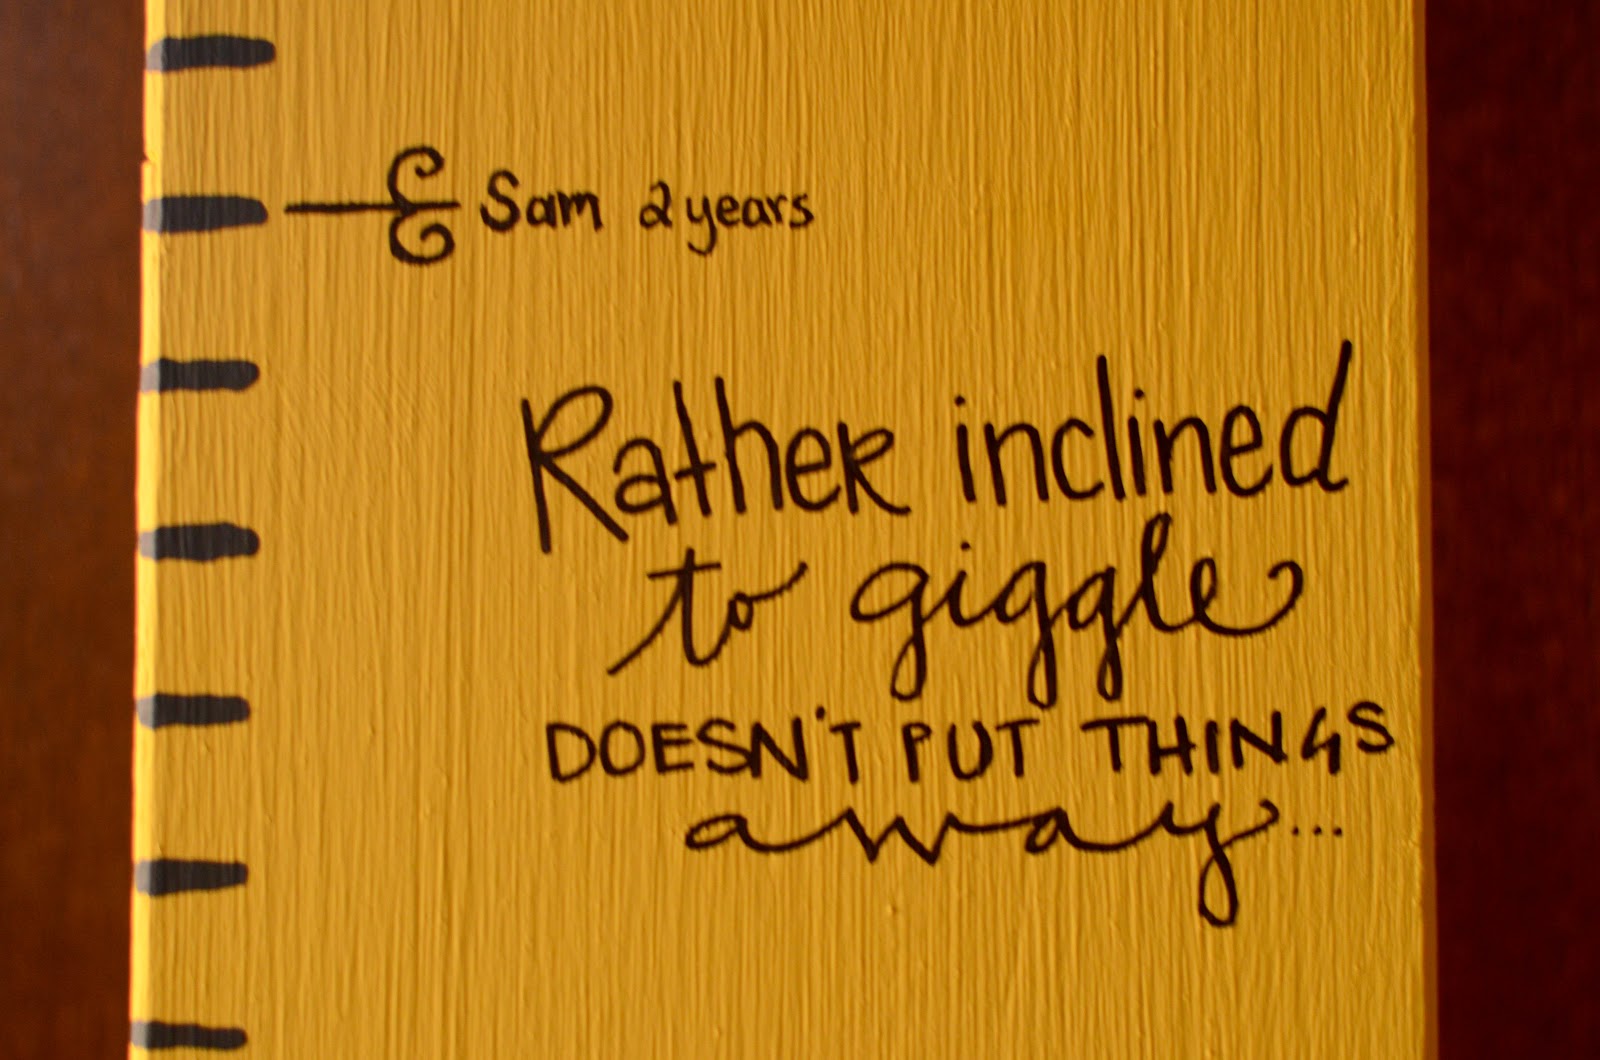 Sam 2 years
Rather inclined
to giggle
DOESN'T PUT THINGS
away...